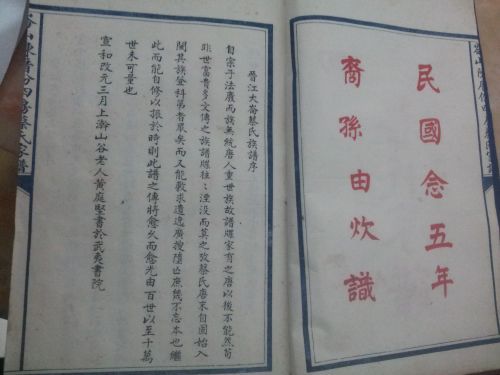 民國念五年
裔孫由炊識
晉江大崙蔡氏族譜序
自宗子法廢而族無統唐人重世族故譜牒家有之唐以後不能然苟
非世富貴多文傳之族譜牒往〻湮没而莫之攷蔡氏唐末自固始入
閩其族登科第者最眾矣而又能敷求遺逸廣搜墮亡庶幾不忘本也繼
此而能自修以振於時則此譜之傳將愈久而愈光由百世以至千萬
世未可量也
宣和改元三月上澣山谷老人黃庭堅書於武夷書院